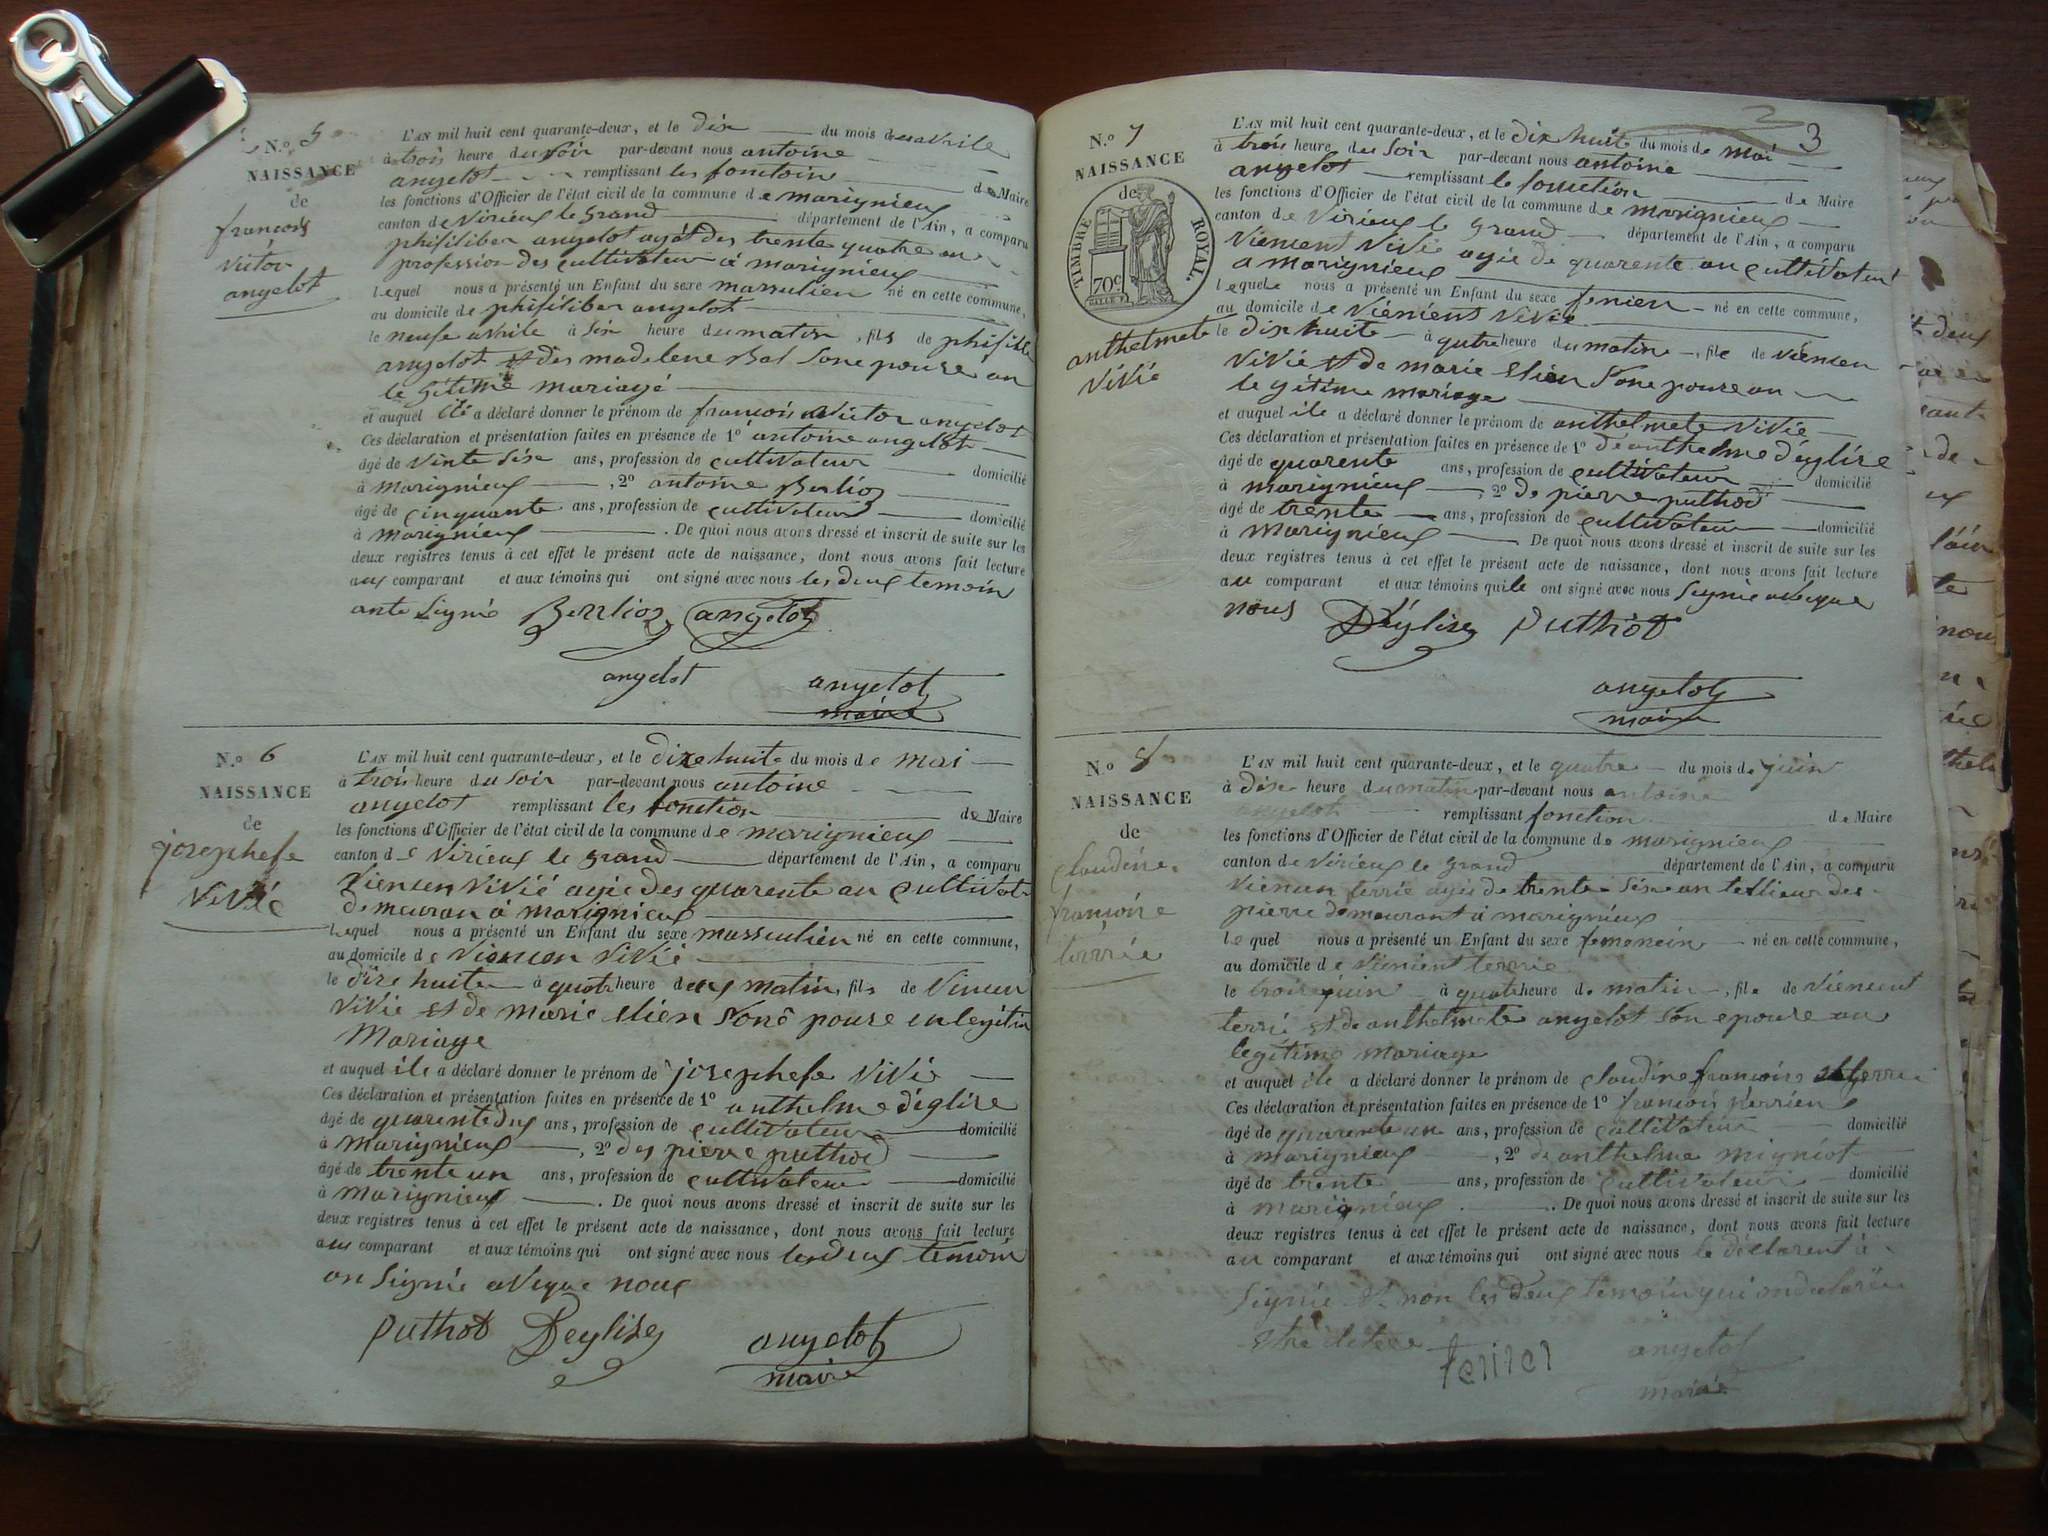 N.o 5
NAISSANCE
de
françois
victor
angelot
L'AN mil huit cent quarante-deux, et le dix du mois de avrile
à trois heure du soir par-devant nous antoine
angelot remplissant les fonctoin de Maire
les fonctions d'Officier de l'état civil de la commune de marignieux
canton de Virieux le grand département de l'Ain, a comparu
phifiliber angelot agét des trente quatre an
profession des cultivateur à marignieux
lequel nous a présenté un Enfant du sexe massulien né en cette commune,
au domicile de phifiliber angelot
le neufe avrile à six heure du matin, fils de phifilibe
angelot et des madelene Bal sone pouse an
le gétime mariagé
et auquel ile a déclaré donner le prénom de françois Victor angelot
Ces déclaration et présentation faites en présence de 1º antoine angelot
âgé de vinte sixe ans, profession de cultivateur domicilié
à marignieux, 2º antoine Berlioz
âgé de cinquante ans, profession de cultivateur domicilié
à marignieux. De quoi nous avons dressé et inscrit de suite sur les
deux registres tenus à cet effet le présent acte de naissance, dont nous avons fait lecture
aux comparant et aux témoins qui ont signé avec nous les deux temoin
ante signie Berrlioz angelot
angelot angelot
maire
N.o 6
NAISSANCE
de
josephefe
ViVié
L'AN mil huit cent quarante-deux, et le dixe huite du mois de mai
à trois heure du soir par-devant nous antoine
angelot remplissant les fonction de Maire
les fonctions d'Officier de l'état civil de la commune de marignieux
canton de Virieux le grand département de l'Ain, a comparu
Viencen ViVié agie des quarente an cultivat
demeuran à marignieux
lequel nous a présenté un Enfant du sexe massculien né en cette commune,
au domicile de Viencen ViVié
le dixe huite à quatr heure deux matin, fils de Vincen
ViVié et de marie elien sone pouse en legitin
Mariage
et auquel ile a déclaré donner le prénom de josephefe ViVié
Ces déclaration et présentation faites en présence de 1º anthelme déglise
âgé de quarente dux ans, profession de cultivateur domicilié
à marignieux, 2º des pierre puthod
âgé de trente un ans, profession de cultivateur domicilié
à marignieux. De quoi nous avons dressé et inscrit de suite sur les
deux registres tenus à cet effet le présent acte de naissance, dont nous avons fait lecture
aux comparant et aux témoins qui ont signé avec nous les deux temoin
on signie aveque nous
puthod Deglise angelot
maire
3
N.o 7
NAISSANCE
de
TIMBRE ROYAL.
70c
anthelmete
ViVié
L'AN mil huit cent quarante-deux, et le dix huit du mois de mai
à trois heure du soir par-devant nous antoine
angelot remplissant le fonction de Maire
les fonctions d'Officier de l'état civil de la commune de marignieux
canton de Virieux le grand département de l'Ain, a comparu
Viencent ViVié agie de quarente an cultivateur
a marignieux
lequele nous a présenté un Enfant du sexe fenien né en cette commune,
au domicile de Viencent ViVié
le dix huite à qutre heure du matine, file de Viencen
ViVié et de marie elien sone pouse an
le gitime mariage
et auquel ile a déclaré donner le prénom de anthelmete ViVié
Ces déclaration et présentation faites en présence de 1º de anthelme déglise
âgé de quarente ans, profession de cultivateur domicilié
à marignieux, 2º de pierre puthod
âgé de trente ans, profession de cultivateur domicilié
à marignieux De quoi nous avons dressé et inscrit de suite sur les
deux registres tenus à cet effet le présent acte de naissance, dont nous avons fait lecture
au comparant et aux témoins quile ont signé avec nous signie aveque
nous Déglise puthod
angelot
maire
N.o 8
NAISSANCE
de
claudine
françoise
terrié
L'AN mil huit cent quarante-deux, et le quatre du mois de juin
à dixe heure du matin par-devant nous antoine
angelot remplissant fonction de Maire
les fonctions d'Officier de l'état civil de la commune de marignieux
canton de Virieux le grand département de l'Ain, a comparu
Viencen terrié agie de trente sixe an tallieur des
pierre demeurant à marignieux
lequel nous a présenté un Enfant du sexe femenein né en cette commune,
au domicile de Vienient terrié
le troix juin à quatr heure de matin, file de Viencent
terrié et de anthelmete angelot son epouse au
legitime mariage
et auquel ile a déclaré donner le prénom de claudine françoise terrié
Ces déclaration et présentation faites en présence de 1º françois perrien
âgé de quarente un ans, profession de cultivateur domicilié
à marignieux, 2º de anthelme migniot
âgé de trente ans, profession de cultivateur domicilié
à marignieux. De quoi nous avons dressé et inscrit de suite sur les
deux registres tenus à cet effet le présent acte de naissance, dont nous avons fait lecture
au comparant et aux témoins qui ont signé avec nous le déclarent à
signie et non les deux temoin qui on declarée
angelot
maire